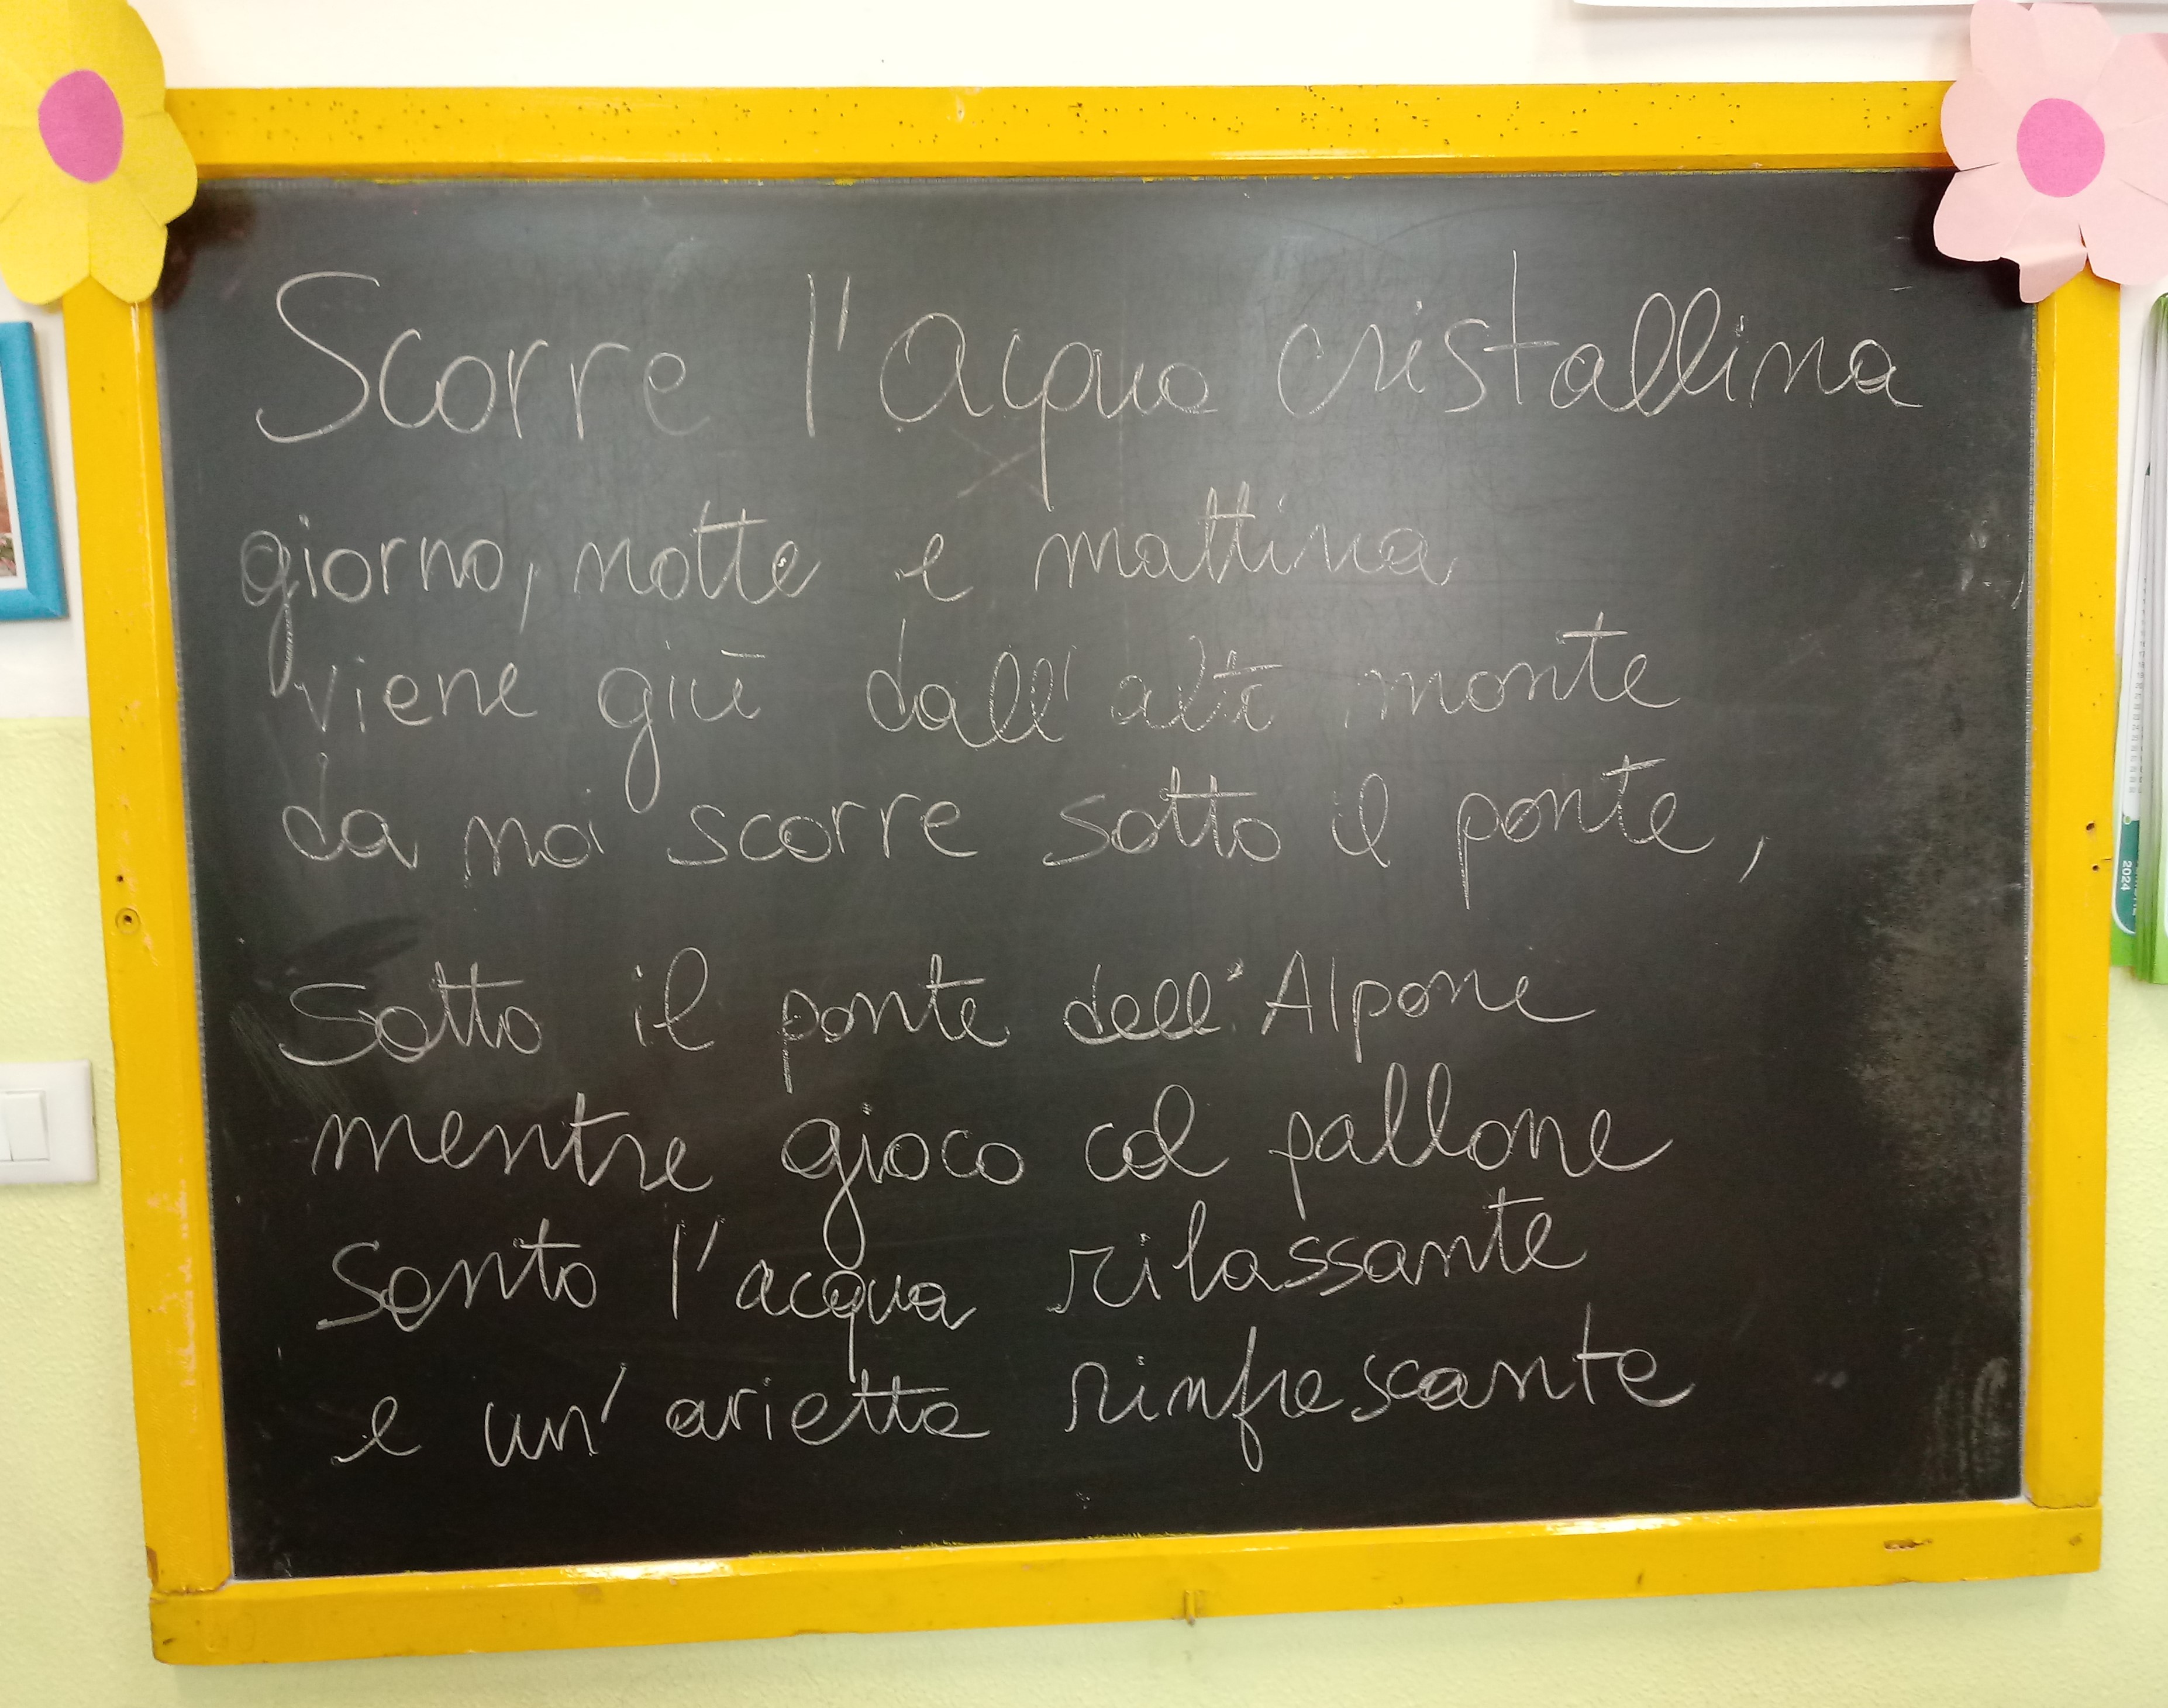 Scorre l'acqua cristallina
giorno, notte e mattina
viene giù dall'alto monte
da noi scorre sotto il ponte,
Sotto il ponte dell'Alpone
mentre gioco col pallone
sento l'acqua rilassante
e un'arietta rinfrescante
2024